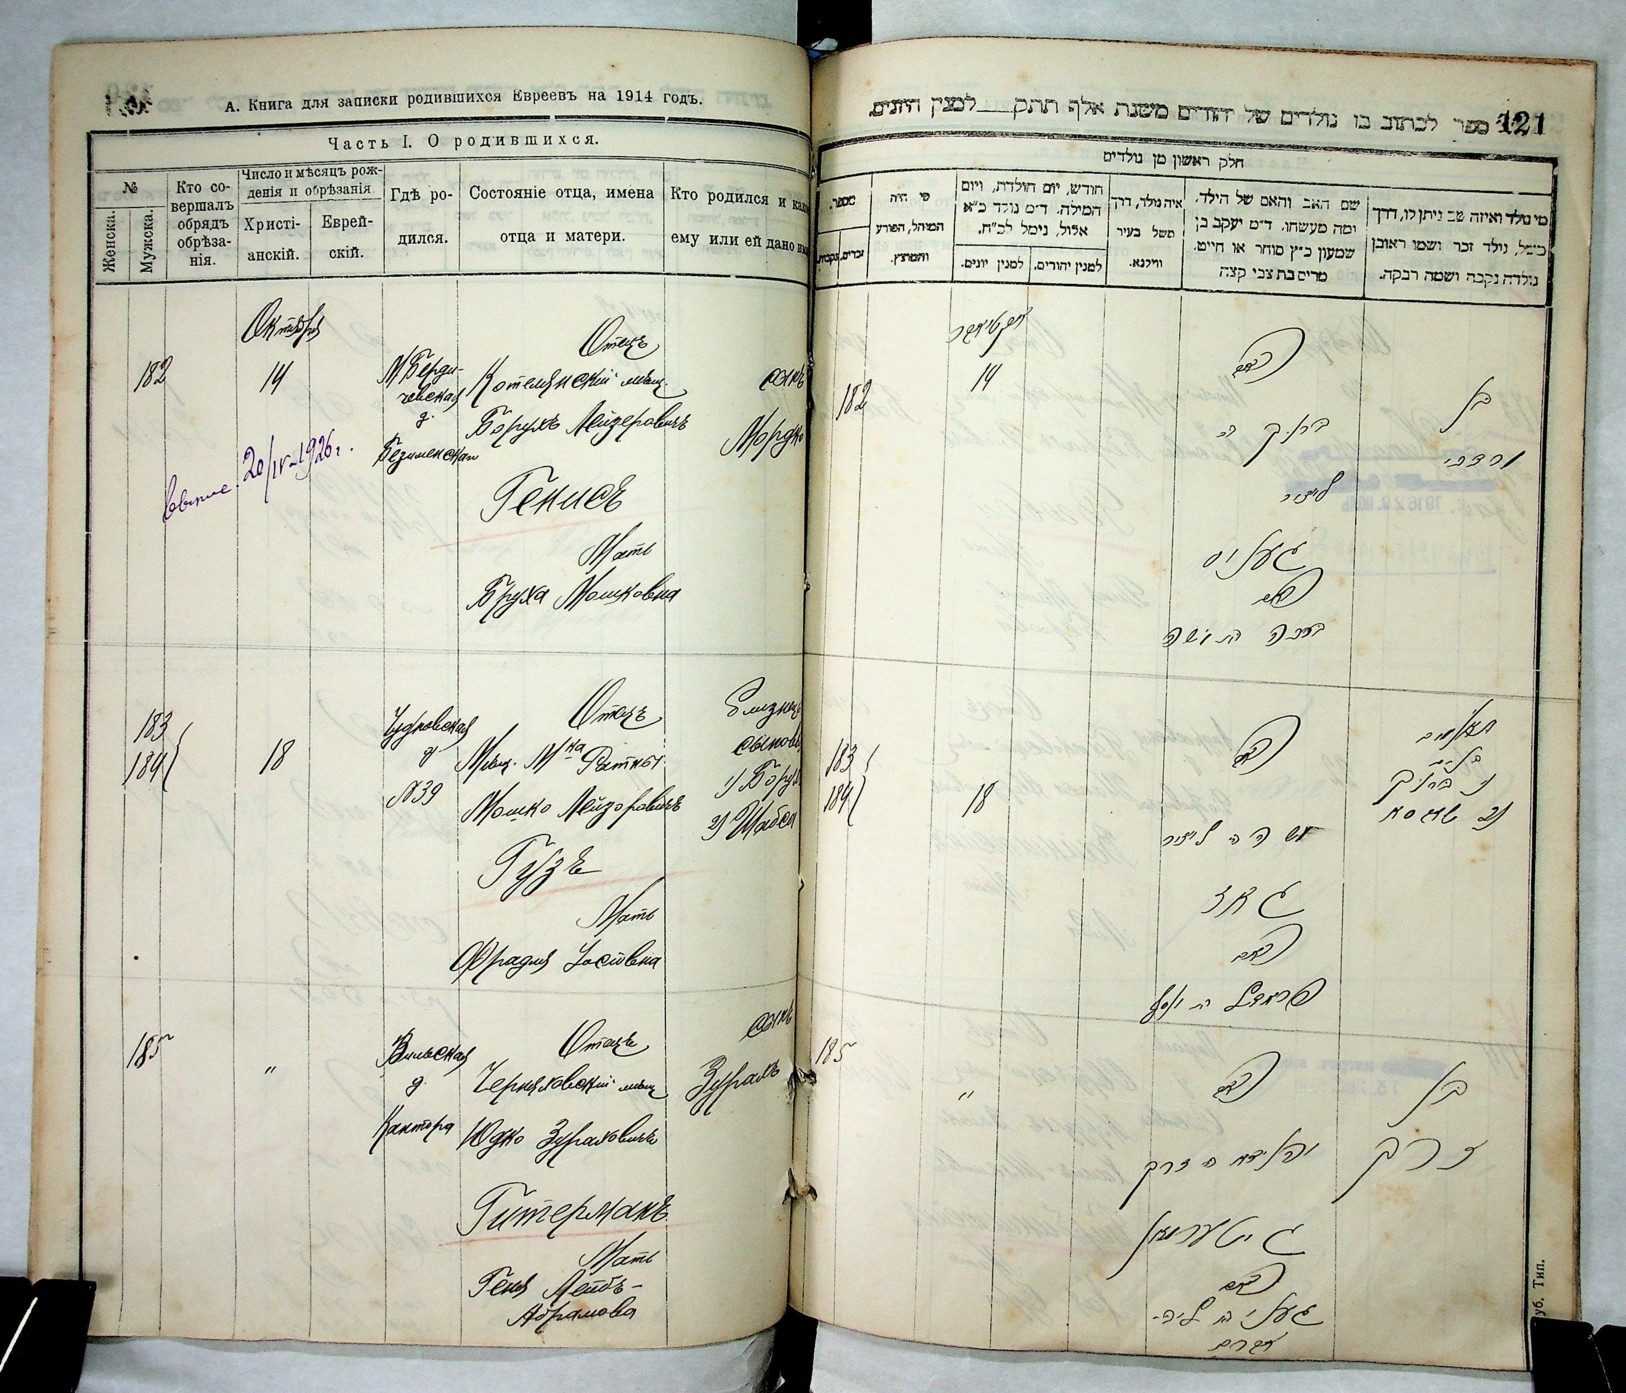 А. Книга для записки родившихся Евреевъ на 1914 годъ.
Часть I. О родившихся.
№
Женска.
Мужска.
Кто со-
вершалъ
обрядъ
обрѣза-
нія.
Число и мѣсяцъ рож-
денія и обрѣзанія
Христі-
анскій.
Еврей-
скій.
Гдѣ ро-
дился.
Состояніе отца, имена
отца и матери.
Кто родился и како
ему или ей дано им
Октября
182
14
М Берди-
чевская
д.
Безименская
Отецъ
Котелянскій мѣщ.
Борухъ Лейзеровичъ
Генисъ
Мать
Бруха Мошковна
сынъ
Мордко
20/IV-1926 г.
183
184
18
Чудновская
д
№39
Отецъ
Мѣщ. М-ка
Мошко Лейзоровичъ
Гузъ
Мать
Фрадля Іосiовна
Близнецы
сыновья
1) Борух
2) Шабса
185
"
Вильская
д.
Кантора
Отецъ
Черняховскій мѣщ
Юдко Зурахович
Гитерманъ
Мать
Геня Лейбъ-
Абрамова
сынъ
Зурахъ
121
ספר לכתוב בו נולדים של יהודים משנת אלף תתק למנין היונים.
חלק ראשון מן נולדים
מספר.
זכרים.
נקבות.
מי היה
המוהל, הפורע
והמוצץ.
חודש, יום הולדת, ויום
המילה. ד״מ נולד כ״א
אלול, נימל לכ״ח.
למנין יונים.
למנין יהודים.
איה נולד, דרך
משל בעיר
ווילנא.
שם האב והאם של הילד,
ומה מעשהו. ד״מ יעקב בן
שמעון כ״ץ סוחר או חייט.
מרים בת צבי קצה
מי נולד ואיזה שם ניתן לו, דרך
משל, נולד זכר ושמו ראובן
נולדה נקבה ושמה רבקה.
אקטיאבר
182
14
האב
ברוך ב
ליזר
געניס
האם
ברכה בת משה
בן
מרדכי
183
184
18
האב
משה ב ליזר
גוז
האם
פראדל בת יוסף
תאומים
בנים
1 ברוך
2 שאבסא
185
"
האב
זרח
גיטערמאן
האם
געניא בת ליב-
אברהם
בן
זרח
уб. Тип.